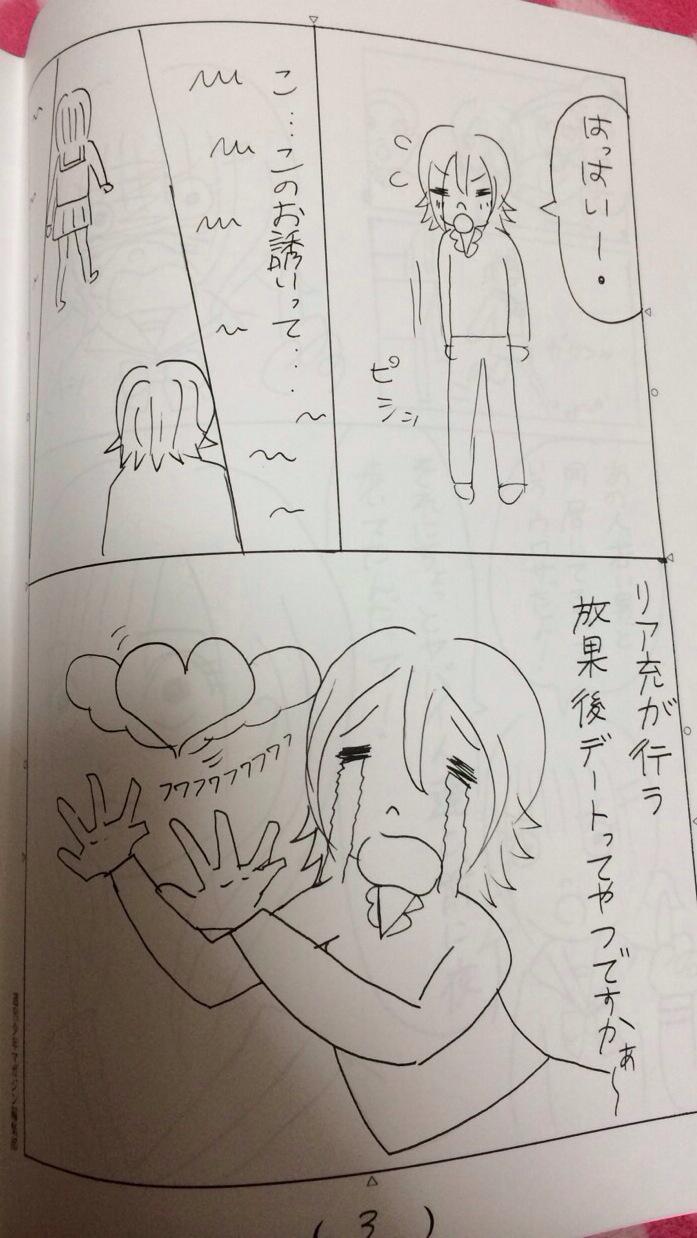 はっはいー。
ピシッ
こ…このお誘いって….
リア充が行う
放課後デートってやつですかぁ〜
フワフワフワフワッ
(3)